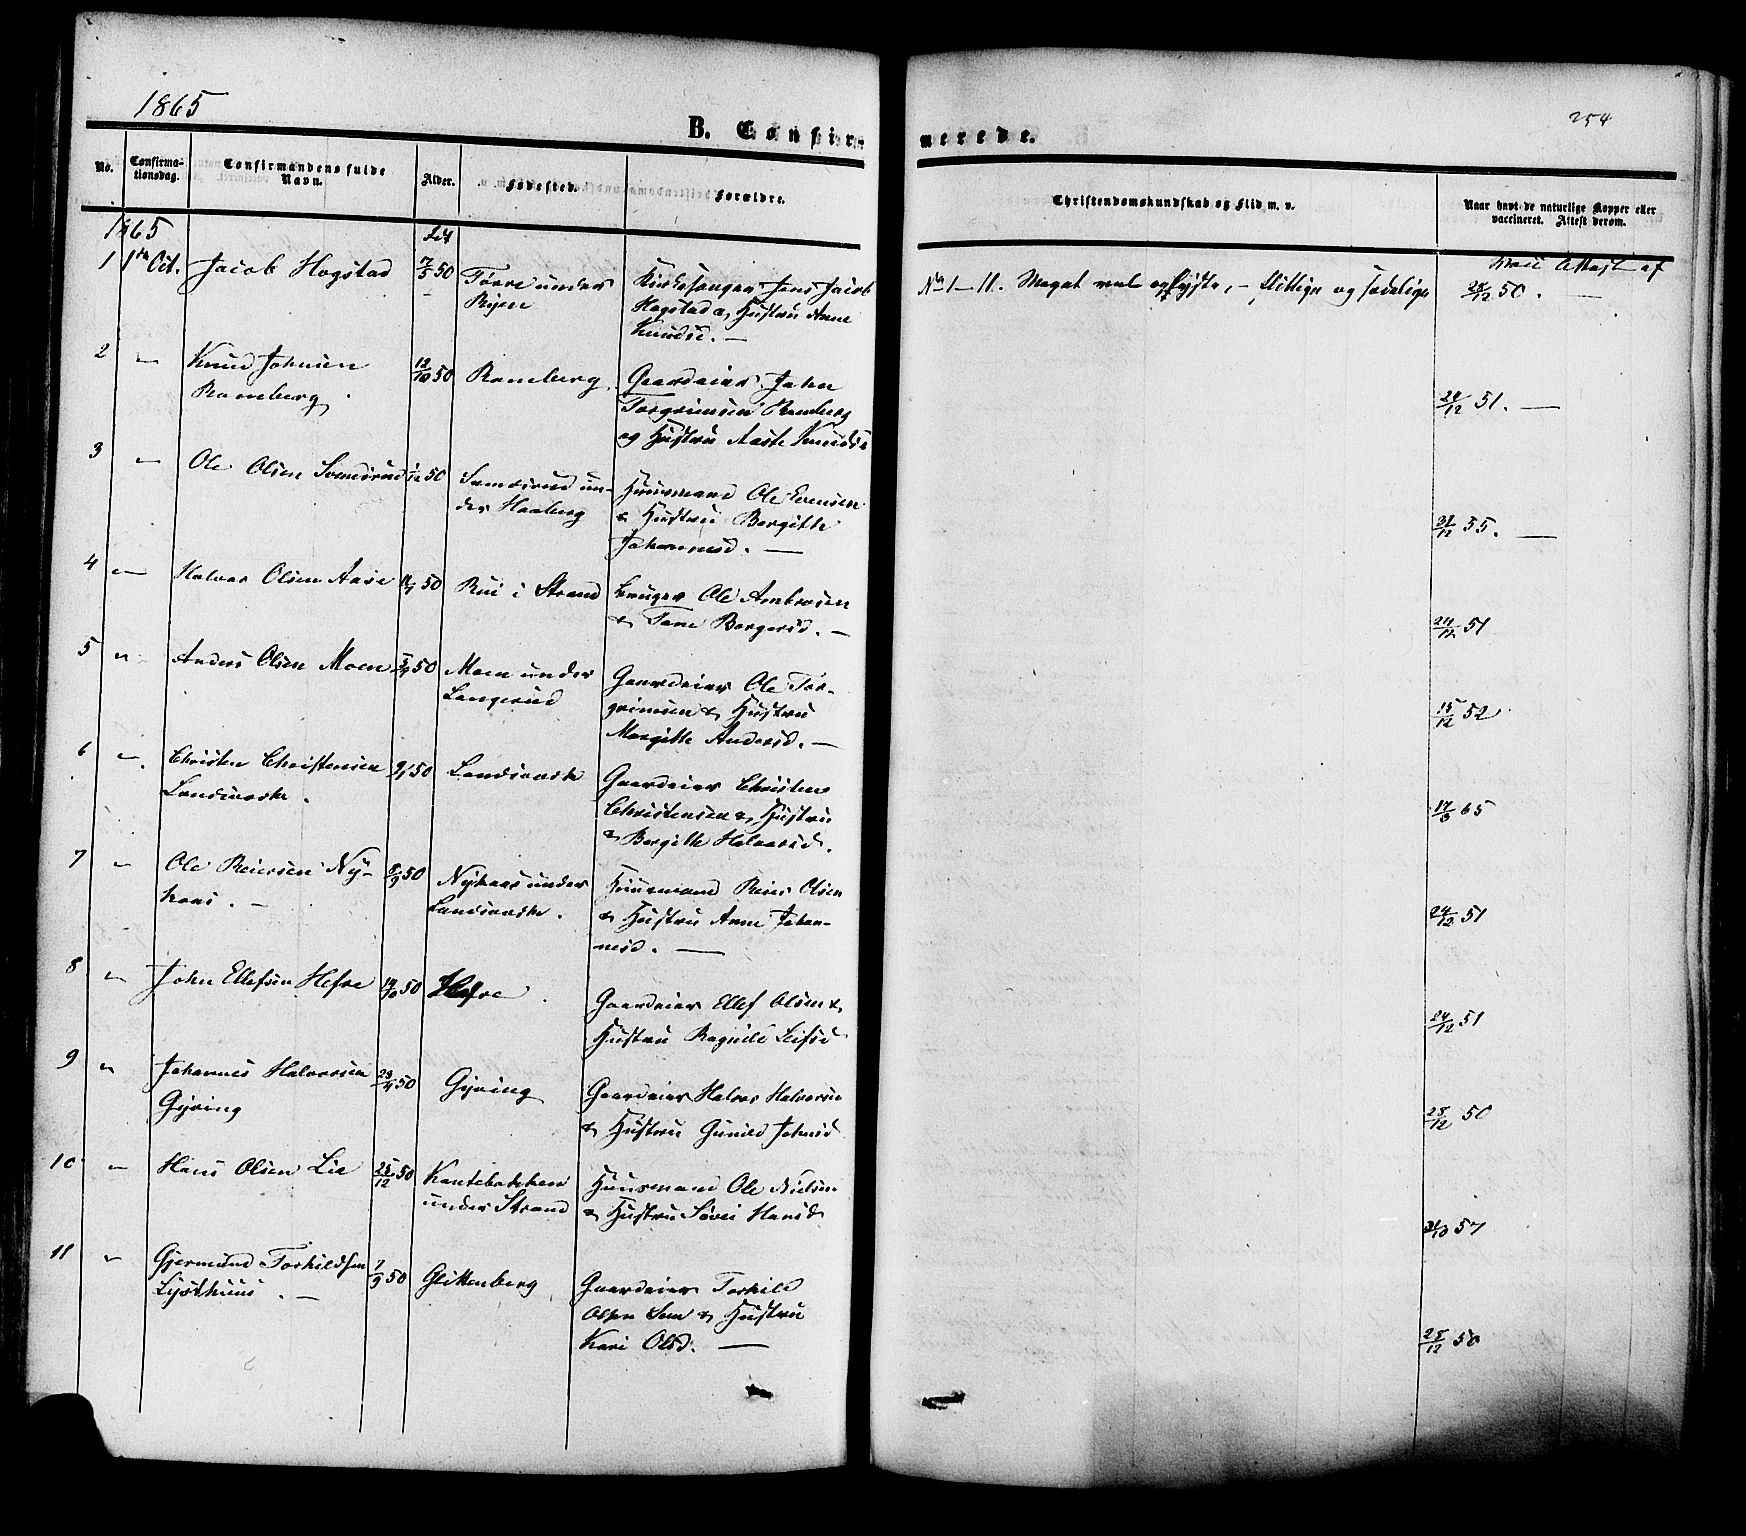 1865
254
B. Confir-
merede.
No.
Confirma-
tionsdag.
Confirmandens fulde
Navn.
Alder.
Fødested.
Forældre.
Christendomskundskab og Flid m. v.
Naar havt de naturlige Kopper eller
vaccineret. Attest derom.
1865
1 1ste Oct. Jacob Hogstad 7/5 50 under
Kirkesanger Jens Jacob
Hogstad & Hustru Anne
Knudsd. —
No 1–11. Meget vel oplyste, – flittige og sædelige
Attest af
28/12 50. —
2 — Knud Johnsen
Ramberg
12/10 50 Ramberg
Gaardeier John
Torgrimsen Ramberg
og Hustru Aaste Knudsd.
28/12 51. —
3 — Ole Olsen 50
under Haaberg
Huusmand Ole Evensen
& Hustru Bergitte
Johannesd. —
31/12 55. —
4 — Halvor Olsen Aase 50 Rui i Strand
Bruger Ole Ambrosen
& Tone Borgersd. —
24/12 51
5 " Anders Olsen Moen 50 Moen under
Langerud
Gaardeier Ole Tor-
grimsen & Hustru
Margitte Andersd. —
15/12 52
6 " Christen Christensen
Landsverk.
9/1 50 Landsverk
Gaardeier Christen
Christensen & Hustru
& Bergitte Halvorsd.
17/5 65
7 " Ole Reiersen Ny-
haus. —
8/9 50 Nyhaus under
Landsverk.
Huusmand Reier Olsen
& Hustru Anne Johan-
nesd. —
24/12 51
8 " John Ellefsen Hefre 50 Hefre
Gaardeier Ellef Olsen &
Hustru Ragnild Leifsd
24/12 51
9 " Johannes Halvorsen
Gyving
50 Gyving
Gaardeier Halvor Halvorsen
& Hustru Gunild Johnsd
28/12 50
10 " Hans Olsen Lie 25/12 50 Kantebakken
under Strand
Huusmand Ole Nielsen
& Hustru Søvei Hansd
57
11 " Gjermund Torkildsen
Lysthuus. —
7/9 50 Glittenberg
Gaardeier Torkild
Olsen Sem & Hustru
Kari Olsd. —
28/12 50